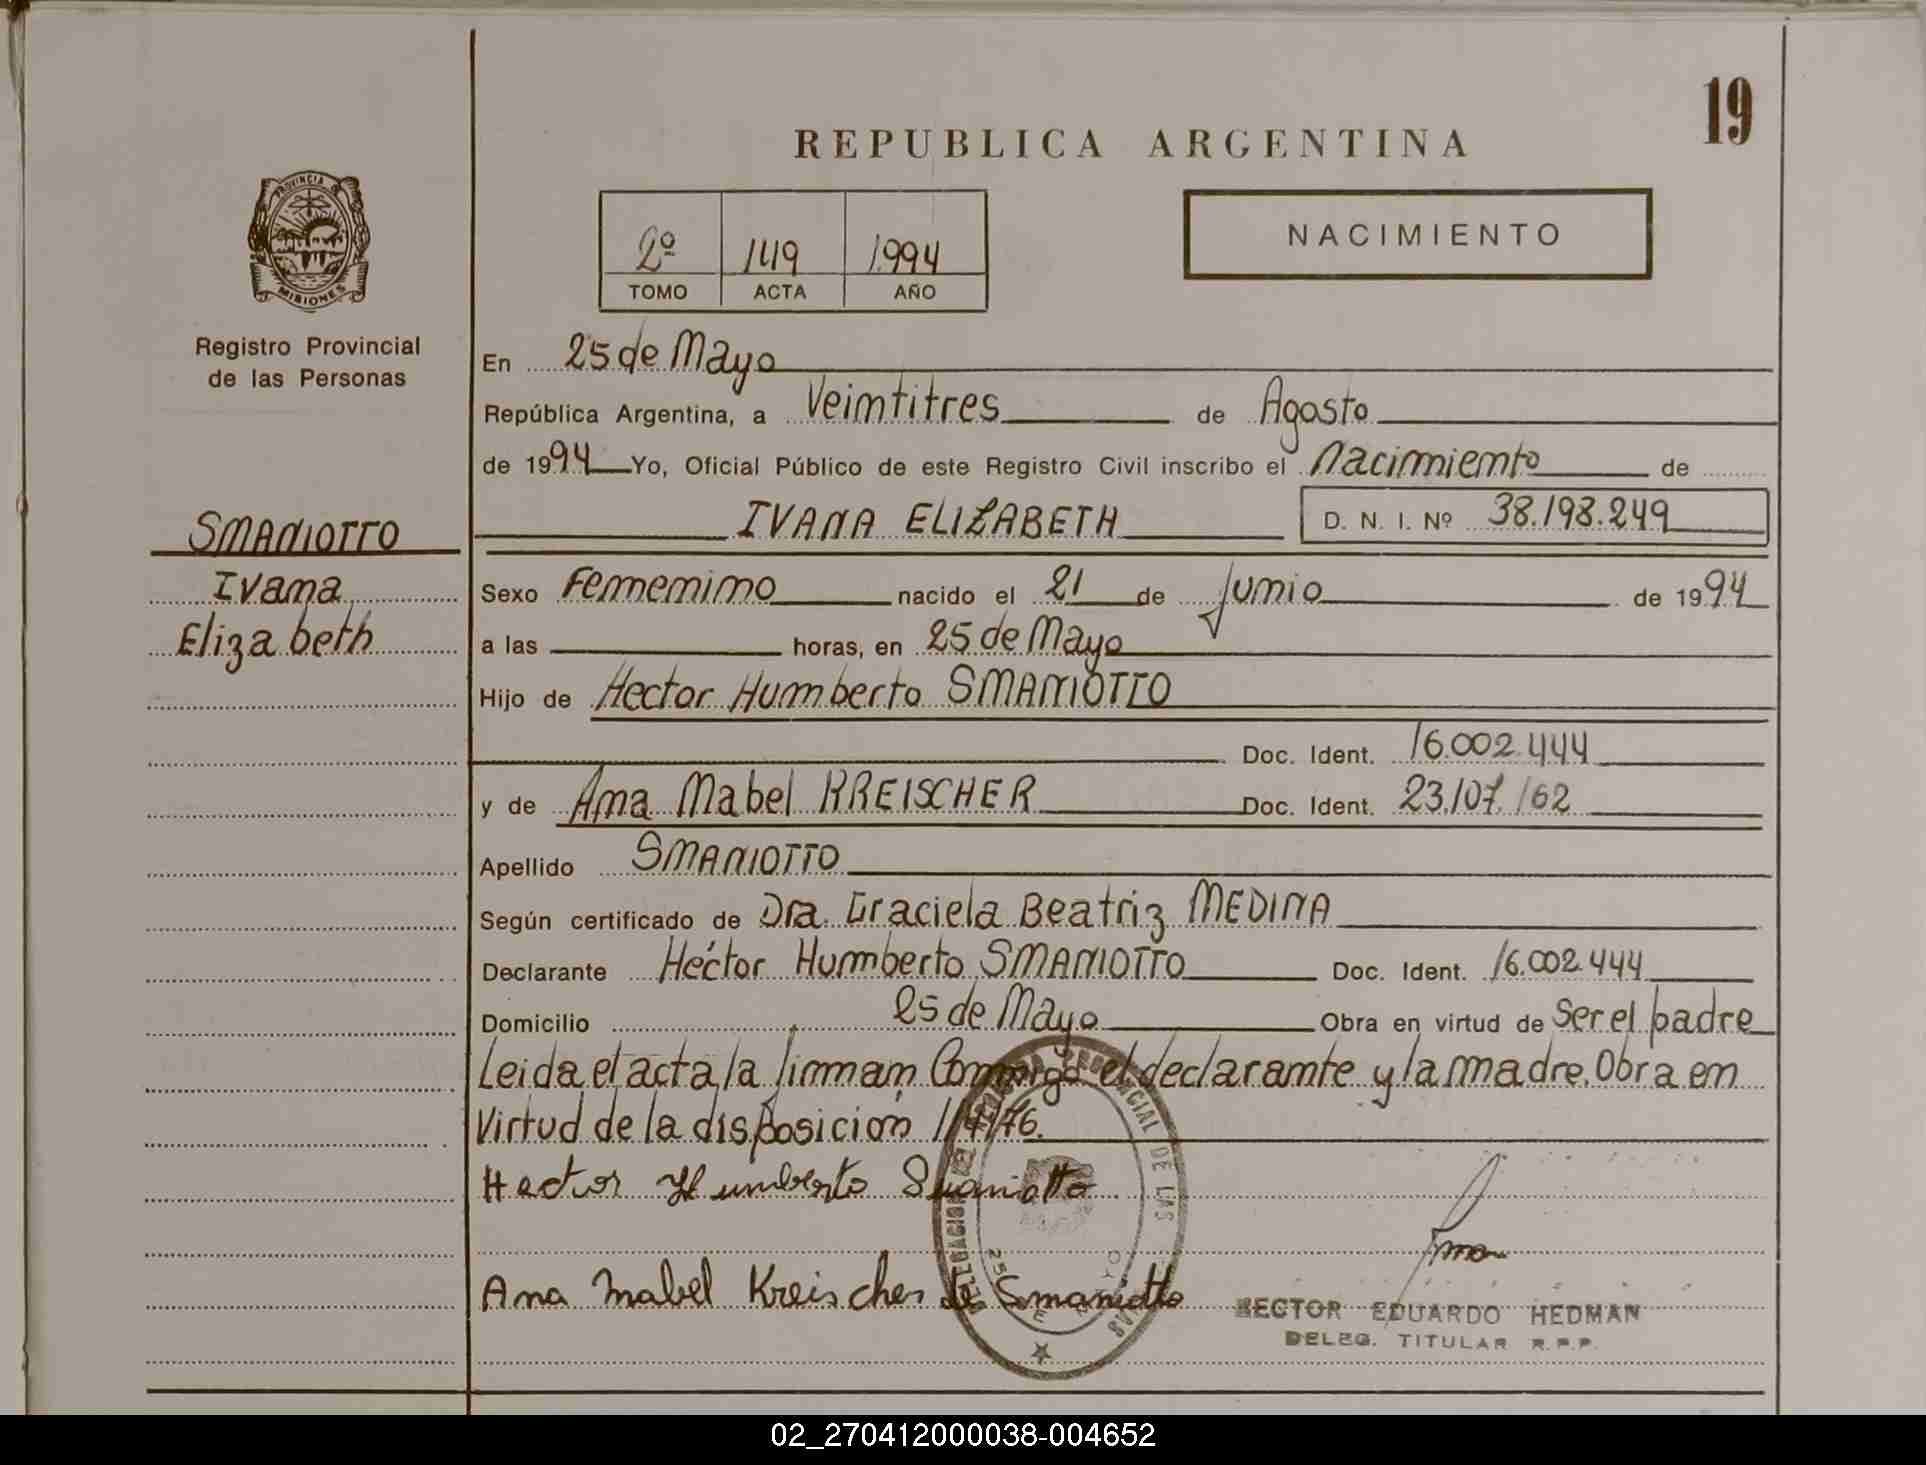 19
REPUBLICA ARGENTINA
PROVINCIA DE
MISIONES
Registro Provincial
de las Personas
2º 119 1994
TOMO ACTA AÑO
NACIMIENTO
En 25 de Mayo
República Argentina, a Veintitres de Agosto
de 1994 Yo, Oficial Público de este Registro Civil inscribo el Nacimiento de
SMANIOTTO
IVANA ELIZABETH D. N. I. Nº 38.198.249
Ivana
Elizabeth
Sexo Femenino nacido el 21 de Junio de 1994
a las horas, en 25 de Mayo
Hijo de Hector Humberto SMANIOTTO
Doc. Ident. 16.002.444
y de Ana Mabel KREISCHER Doc. Ident. 23/07/62
Apellido SMANIOTTO
Según certificado de Dra. Graciela Beatriz MEDINA
Declarante Héctor Humberto SMANIOTTO Doc. Ident. 16.002.444
Domicilio 25 de Mayo Obra en virtud de Ser el padre
Leida el acta, la firman Conmigo el declarante y la madre. Obra en
Virtud de la disposición 1/4/76.
Hector Humberto Smaniotto
Ana Mabel Kreischer de Smaniotto
HECTOR EDUARDO HEDMAN
DELEG. TITULAR R.P.P.
02_270412000038-004652